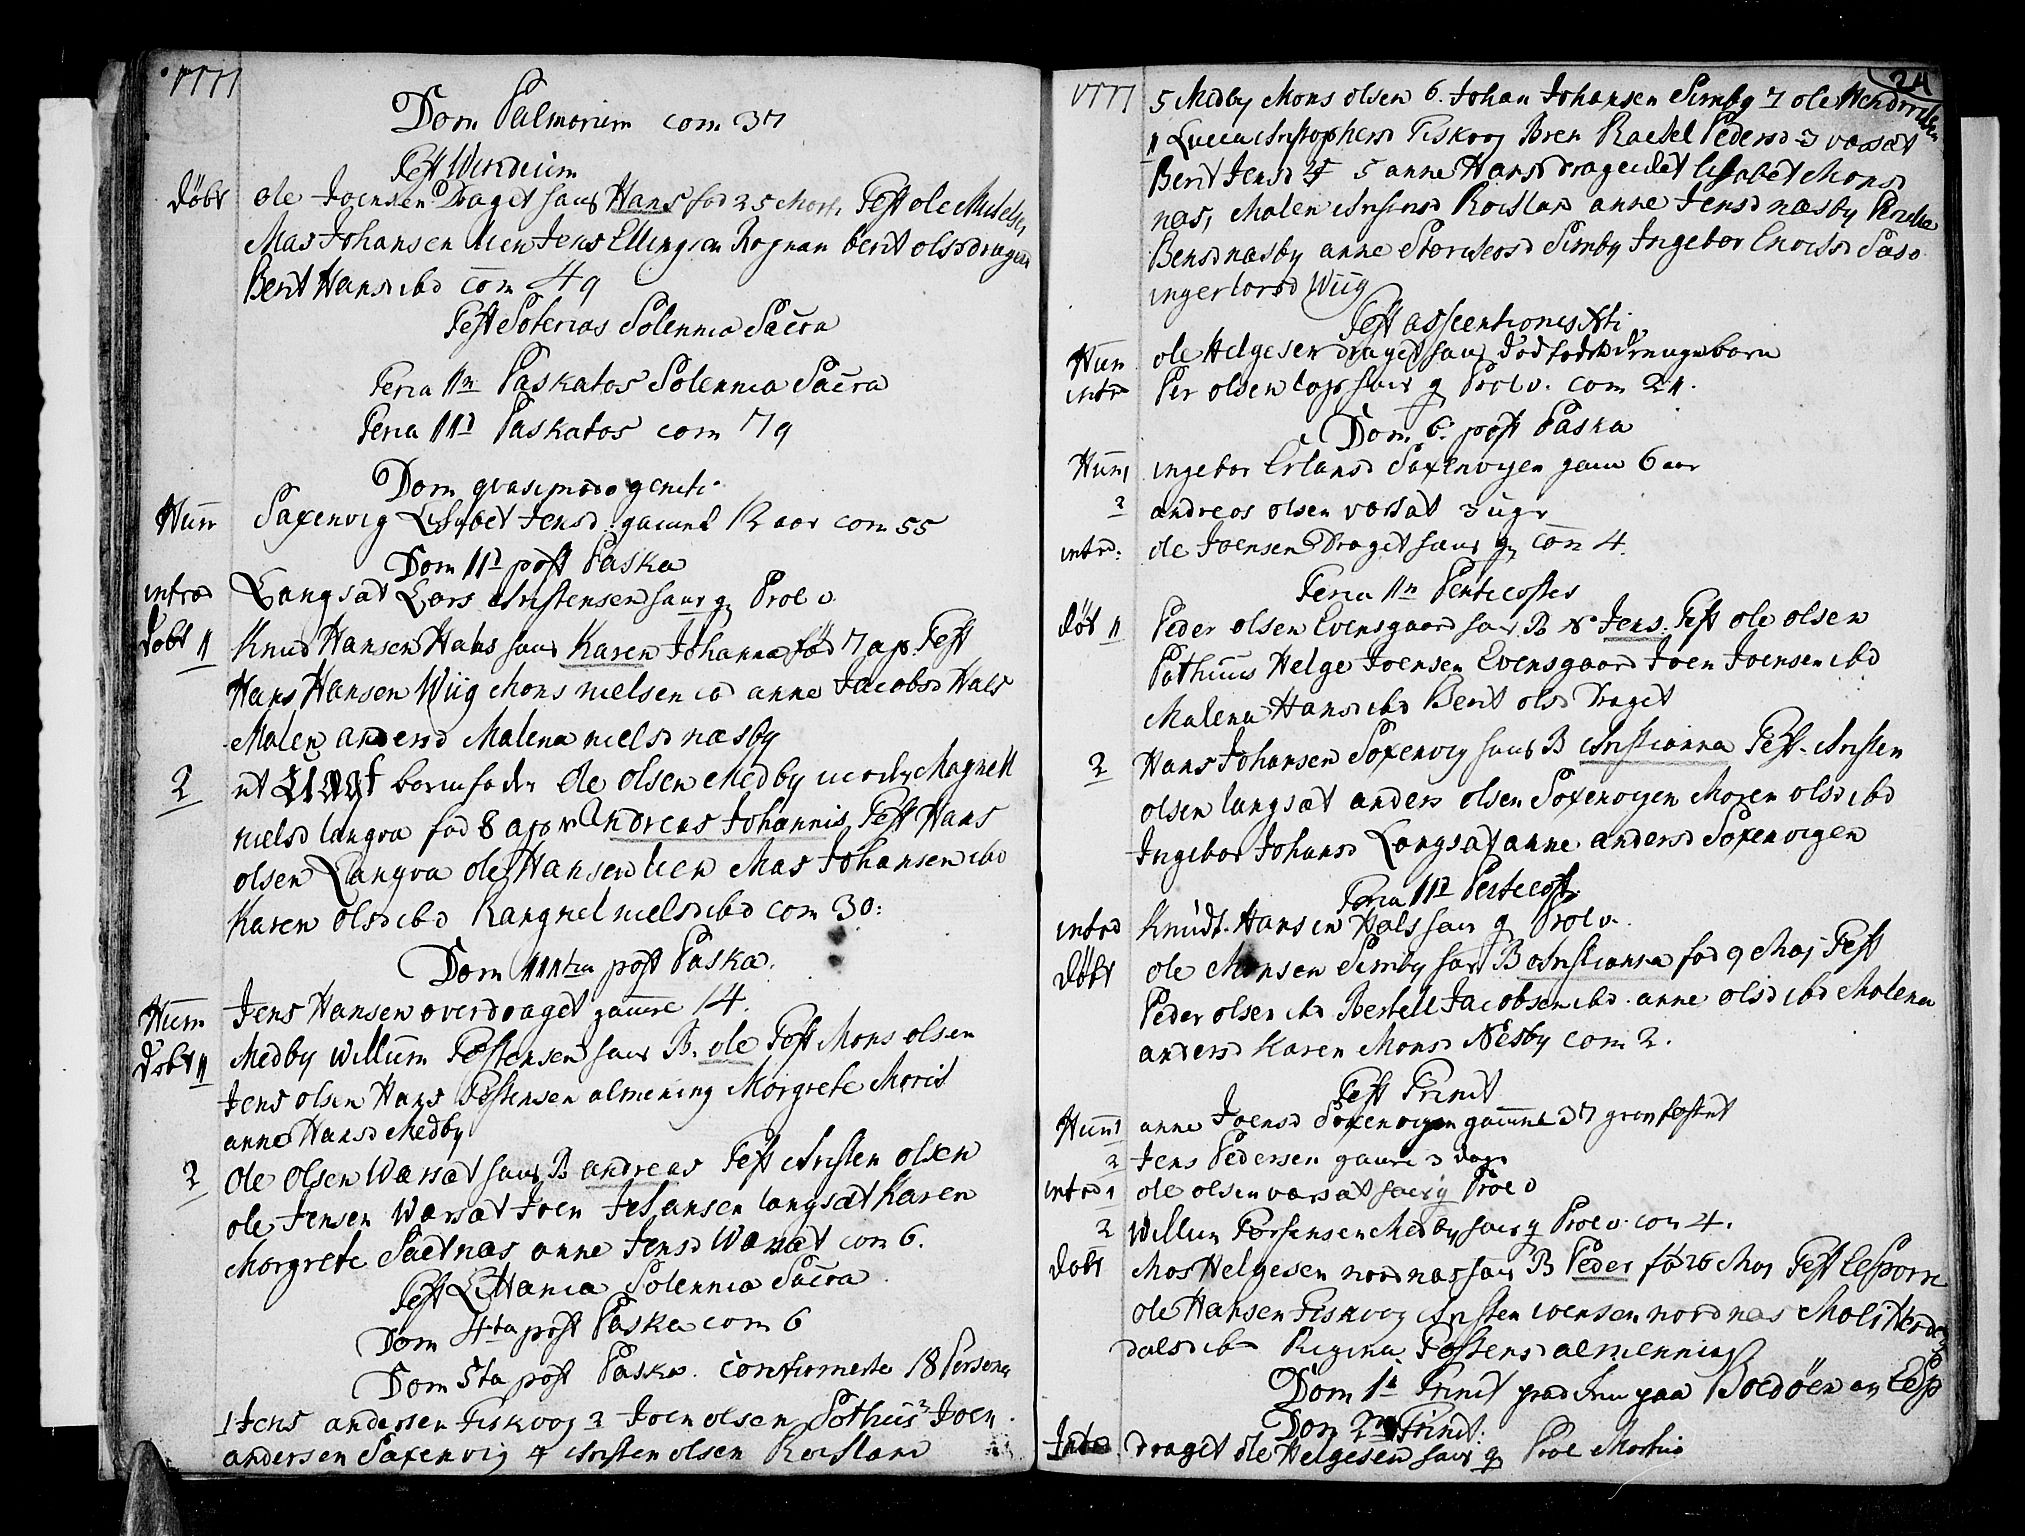 1777
Dom Palmarum com 37
Fest Viridium
døbt ole Joensen Draget haus Hans fød 25 Mart. Test ole Mikels.
Mas Johansen lien Jens Ellingsen Rognan berit olsd draget
Berit Hansd ibd com 49
Fest Soterias Solennia Sacra
Feria 11a Paskatos Solennia Sacra
Feria 111 Paskatos com 79
Dom qvasimodogeniti
Hum Saxenvig Lisbet Jensd. gamel 12 aar com 55
Dom 11d post Paska
introd Langsat Lars Christensen haus q Prol v.
døbt 11 Knud Hansen Hals haus Karen Johanna fød 7 apr Test
Hans Hansen Wiig Mons nielsen ibd anne Jacobsd Hals
Malen andersd Malena nielsd næsby
2 et barn fader Ole olsen Medby moder Magnell
nielsd langva fød 8 apr Andreas Johannis Test Hans
olsen Langva ole Hansen lien Mas Johansen ibd
Karen olsd ibd Rangnel nielsd ibd com 30:
Dom 111tia post Paska.
Hum Jens Hansen overdraget gamme 14.
døbt 11 Medby Willum Tostensen haus B. ole Test Mons olsen
Jens olsen Hans Tostensen almening Morgrete Moris
anne Hansd Medby
2 Ole Olsen Warsat haus B andreas Test Christen olsen
ole Jensen Warsat Joen Johansen langsat Karen
Morgrete Saetnas anne Jensd Warsat com 6.
Fest Litania Solennia Sacra
Dom 4ta post Paska com 6
Dom 5ta post Paska. confirmerte 18 Persona
1 Jens andersen Fiskvog 2 Joen olsen Pothus 3 Joen
andersen Saxenvig 4 Christen olsen Rosland
1777 24
5 Medby Mons olsen 6. Johan Johansen Simby 7 ole Hendricksen
1 Lucia Christophersd Fiskvog Bren Raekel Pedersd 3 varsat
Berit Jensd 4 5 anne Hansd drageidet lisabet Monsd
nas, Malen Christensd Rosland anne Jensd næsby
Bensd næsby anne Simby Ingebor Saso
inger larsd Wiig
Fest ascentionis Xti
Hum ole Helgesen draget haus dødfødt drengebarn
intr Per olsen haus q Prol v. com 21.
Dom 6. post Paska
Hum 1 ingebor Erlansd Saxenvigen gam 6 aar
2 andreas olsen varsat 3 uger
introd: ole Joensen Draget haus q com 4.
Feria 11a Pentecostes
døt 11 Peder olsen Evensgaard haus B N. Jens. Test ole olsen
Pothuus Helge Joensen Evensgaard Joen Joensen ibd
Malena Hansd ibd Berit olsd Draget
2 Hans Johansen Saxenvig haus B Christianna Test. Christen
olsen langsat anders olsen Saxenvigen Maren olsd ibd
Ingebor Johansd Langsat anne andersd Saxenvigen
Feria 111 Pentecost
introd Knudt Hansen Hals haus q Prol v.
døbt ole Monsen Simby haus B Christianna fød 9 Maj Test
Peder olsen ibd Bertell Jacobsen ibd. anne olsd ibd Malena
andersd Karen Monsd Nesby com 2.
Fest Trinit
Hum 1 anne Joensd Saxenvigen gamme 37
2 Jens Pedersen gamme 3 dage
introd 1 ole olsen varsat haus q Prol v
2 Willum Torstensen Medby haus q Prol v. com 4.
døbt Mos Helgesen nordnas haus B Peder fød 26 Maj Test
ole Hansen Fiskvog Christen nordnas
dalsd ibd Regina Tostensd almenning
Dom 1a Trinit paa Boedøen
Dom 2n Trinit.
Intro draget ole Helgesen haus q Prol